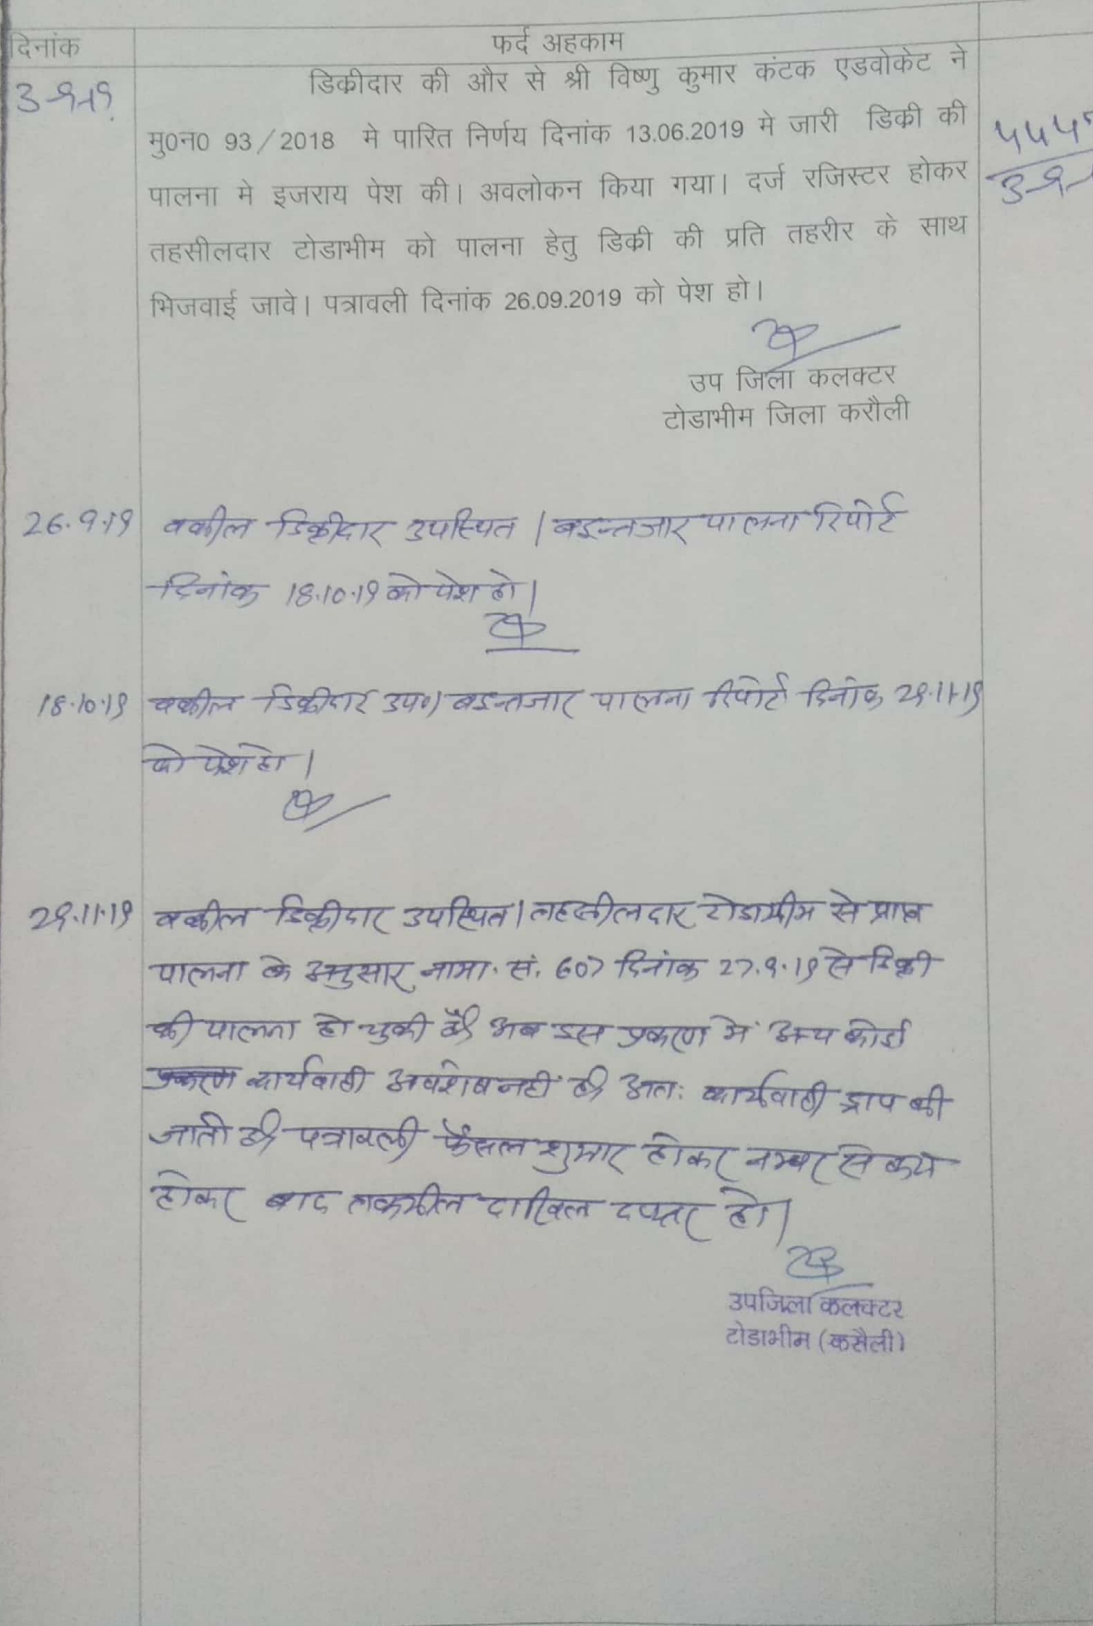 दिनांक
फर्द अहकाम
3-9-19
डिकीदार की और से श्री विष्णु कुमार कंटक एडवोकेट ने
मु0न0 93/2018 मे पारित निर्णय दिनांक 13.06.2019 मे जारी डिकी की
पालना मे इजराय पेश की। अवलोकन किया गया। दर्ज रजिस्टर होकर
तहसीलदार टोडाभीम को पालना हेतु डिकी की प्रति तहरीर के साथ
भिजवाई जावे। पत्रावली दिनांक 26.09.2019 को पेश हो।
उप जिला कलक्टर
टोडाभीम जिला करौली
26.9.19 वकील डिक्रीदार उपस्थित। बइन्तजार पालना रिपोर्ट
दिनांक 18.10.19 को पेश हो।
18.10.19 वकील डिक्रीदार उप०। बइन्तजार पालना रिपोर्ट दिनांक 29.11.19
को पेश हो।
29.11.19 वकील डिक्रीदार उपस्थित। तहसीलदार टोडाभीम से प्राप्त
पालना के अनुसार नामा. सं. 607 दिनांक 27.9.19 से डिक्री
की पालना हो चुकी है। अब इस प्रकरण में अन्य कोई
प्रकरण कार्यवाही अवशेष नहीं है। अतः कार्यवाही ड्राप की
जाती है। पत्रावली फैसल शुमार होकर नम्बर से कम
होकर बाद तकमील दाखिल दफ्तर हो।
उपजिला कलक्टर
टोडाभीम (करौली)